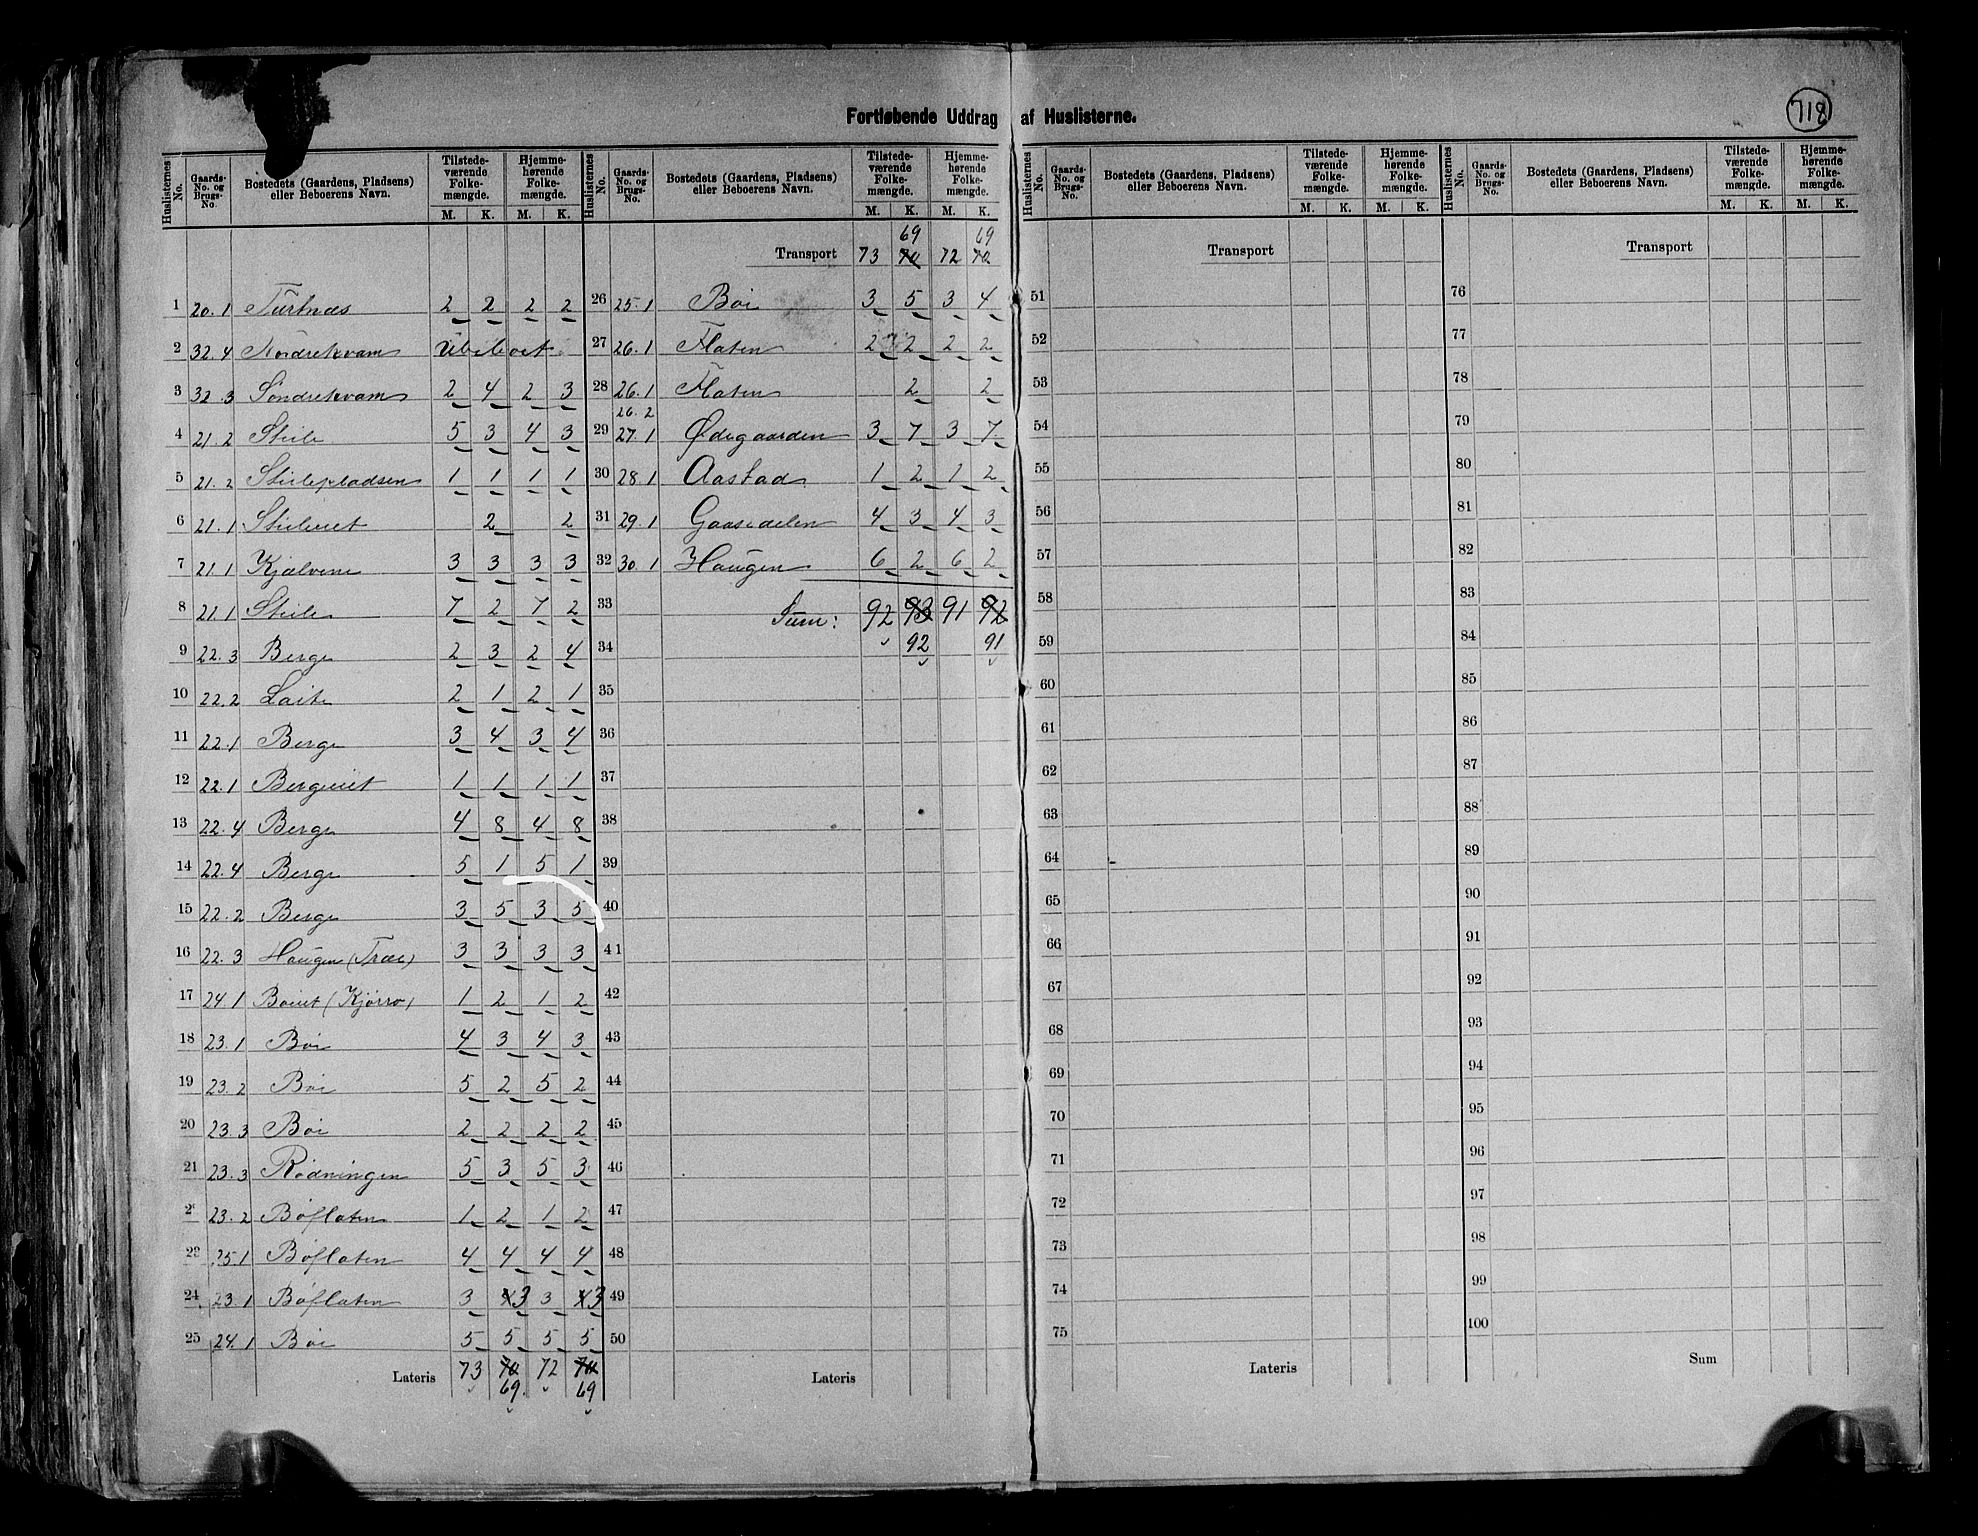 Fortløbende Uddrag af Huslisterne.
718
Huslisternes No. | Gaards-No. og Brugs-No. | Bostedets (Gaardens, Pladsens) eller Beboerens Navn. | Tilstede-værende Folke-mængde. M. K. | Hjemme-hørende Folke-mængde. M. K.
1 20.1 Turtnæs 2 2 2 2
2 32.4 Nordrekvam Ubeboet
3 32.3 Søndrekvam 2 4 2 3
4 21.2 5 3 4 3
5 21.2 1 1 1 1
6 21.1 2 2
7 21.1 Kjælvene 3 3 3 3
8 21.1 7 2 7 2
9 22.3 Berge 2 3 2 4
10 22.2 2 1 2 1
11 22.1 Berge 3 4 3 4
12 22.1 Bergeiet 1 1 1 1
13 22.4 Berge 4 8 4 8
14 22.4 Berge 5 1 5 1
15 22.2 Berge 3 5 3 5
16 22.3 Haugen (Træe) 3 3 3 3
17 24.1 Bøiiet (Kjørro) 1 2 1 2
18 23.1 Bøi 4 3 4 3
19 23.2 Bøi 5 2 5 2
20 23.3 Bøi 2 2 2 2
21 23.3 Rødningen 5 3 5 3
2 23.2 Bøflaten 1 2 1 2
23 25.1 Bøflaten 4 4 4 4
24 23.1 Bøflaten 3 4 3 3 4 3
25 24.1 Bøi 5 5 5 5
Lateris 73 70 72 70
69 69
Huslisternes No. | Gaards-No. og Brugs-No. | Bostedets (Gaardens, Pladsens) eller Beboerens Navn. | Tilstede-værende Folke-mængde. M. K. | Hjemme-hørende Folke-mængde. M. K.
69 69
Transport 73 70 72 70
26 25.1 Bøi 3 5 3 4
27 26.1 Flaten 2 2 2 2
28 26.1 Flaten 2 2
26.2
29 27.1 Ødegaarden 3 7 3 7
30 28.1 Aastad 1 2 1 2
31 29.1 Gaasedelen 4 3 4 3
32 30.1 Haugen 6 2 6 2
33 Sum: 92 93 91 92
34 92 91
35
36
37
38
39
40
41
42
43
44
45
46
47
48
49
50
Lateris
Huslisternes No. | Gaards-No. og Brugs-No. | Bostedets (Gaardens, Pladsens) eller Beboerens Navn. | Tilstede-værende Folke-mængde. M. K. | Hjemme-hørende Folke-mængde. M. K.
Transport
51
52
53
54
55
56
57
58
59
60
61
62
63
64
65
66
67
68
69
70
71
72
73
74
75
Lateris
Huslisternes No. | Gaards-No. og Brugs-No. | Bostedets (Gaardens, Pladsens) eller Beboerens Navn. | Tilstede-værende Folke-mængde. M. K. | Hjemme-hørende Folke-mængde. M. K.
Transport
76
77
78
79
80
81
82
83
84
85
86
87
88
89
90
91
92
93
94
95
96
97
98
99
100
Sum